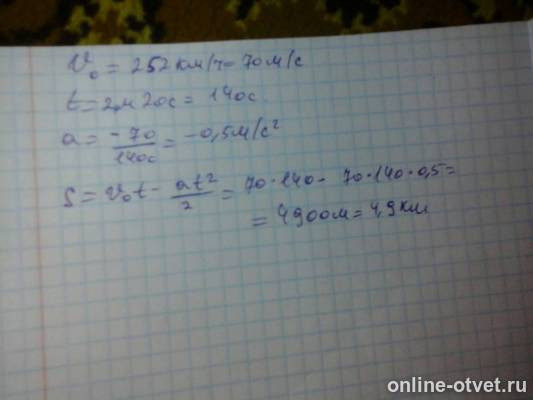 V₀ = 252 км/ч = 70 м/с
t = 2м 20с = 140с.
a = -70/140с = -0,5 м/с²
S = V₀t - at²/2 = 70·140 - 70·140·0,5 =
= 4900м = 4,9 км
online-otvet.ru